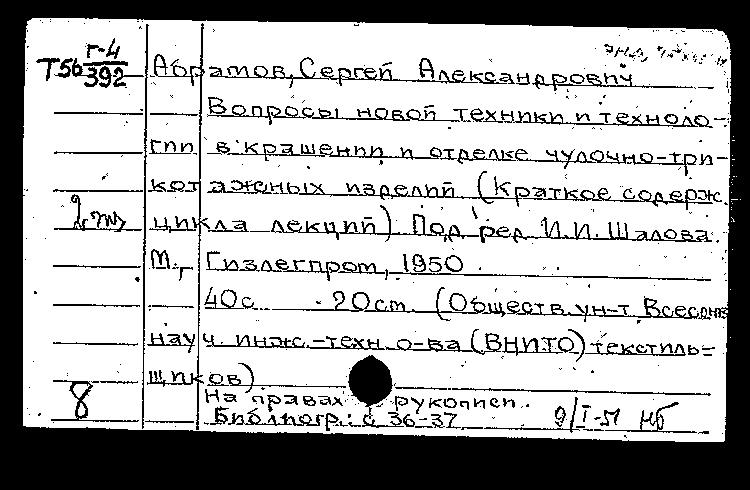 Т56 г-4/392 Абрамов, Сергей Александрович
Вопросы новой техники и техноло-
гии в крашении и отделке чулочно-три-
котажных изделий (Краткое содерж.
2 экз цикла лекций) Под ред И.И. Шалова.
М., Гизлегпром, 1950
40с. 20см. (Обществ. ун-т Всесоюз
науч. инж.-техн. о-ва (ВНИТО) текстиль-
щиков)
На правах рукописи.
8 Библиогр.: с 36-37 9/I-51 НБ